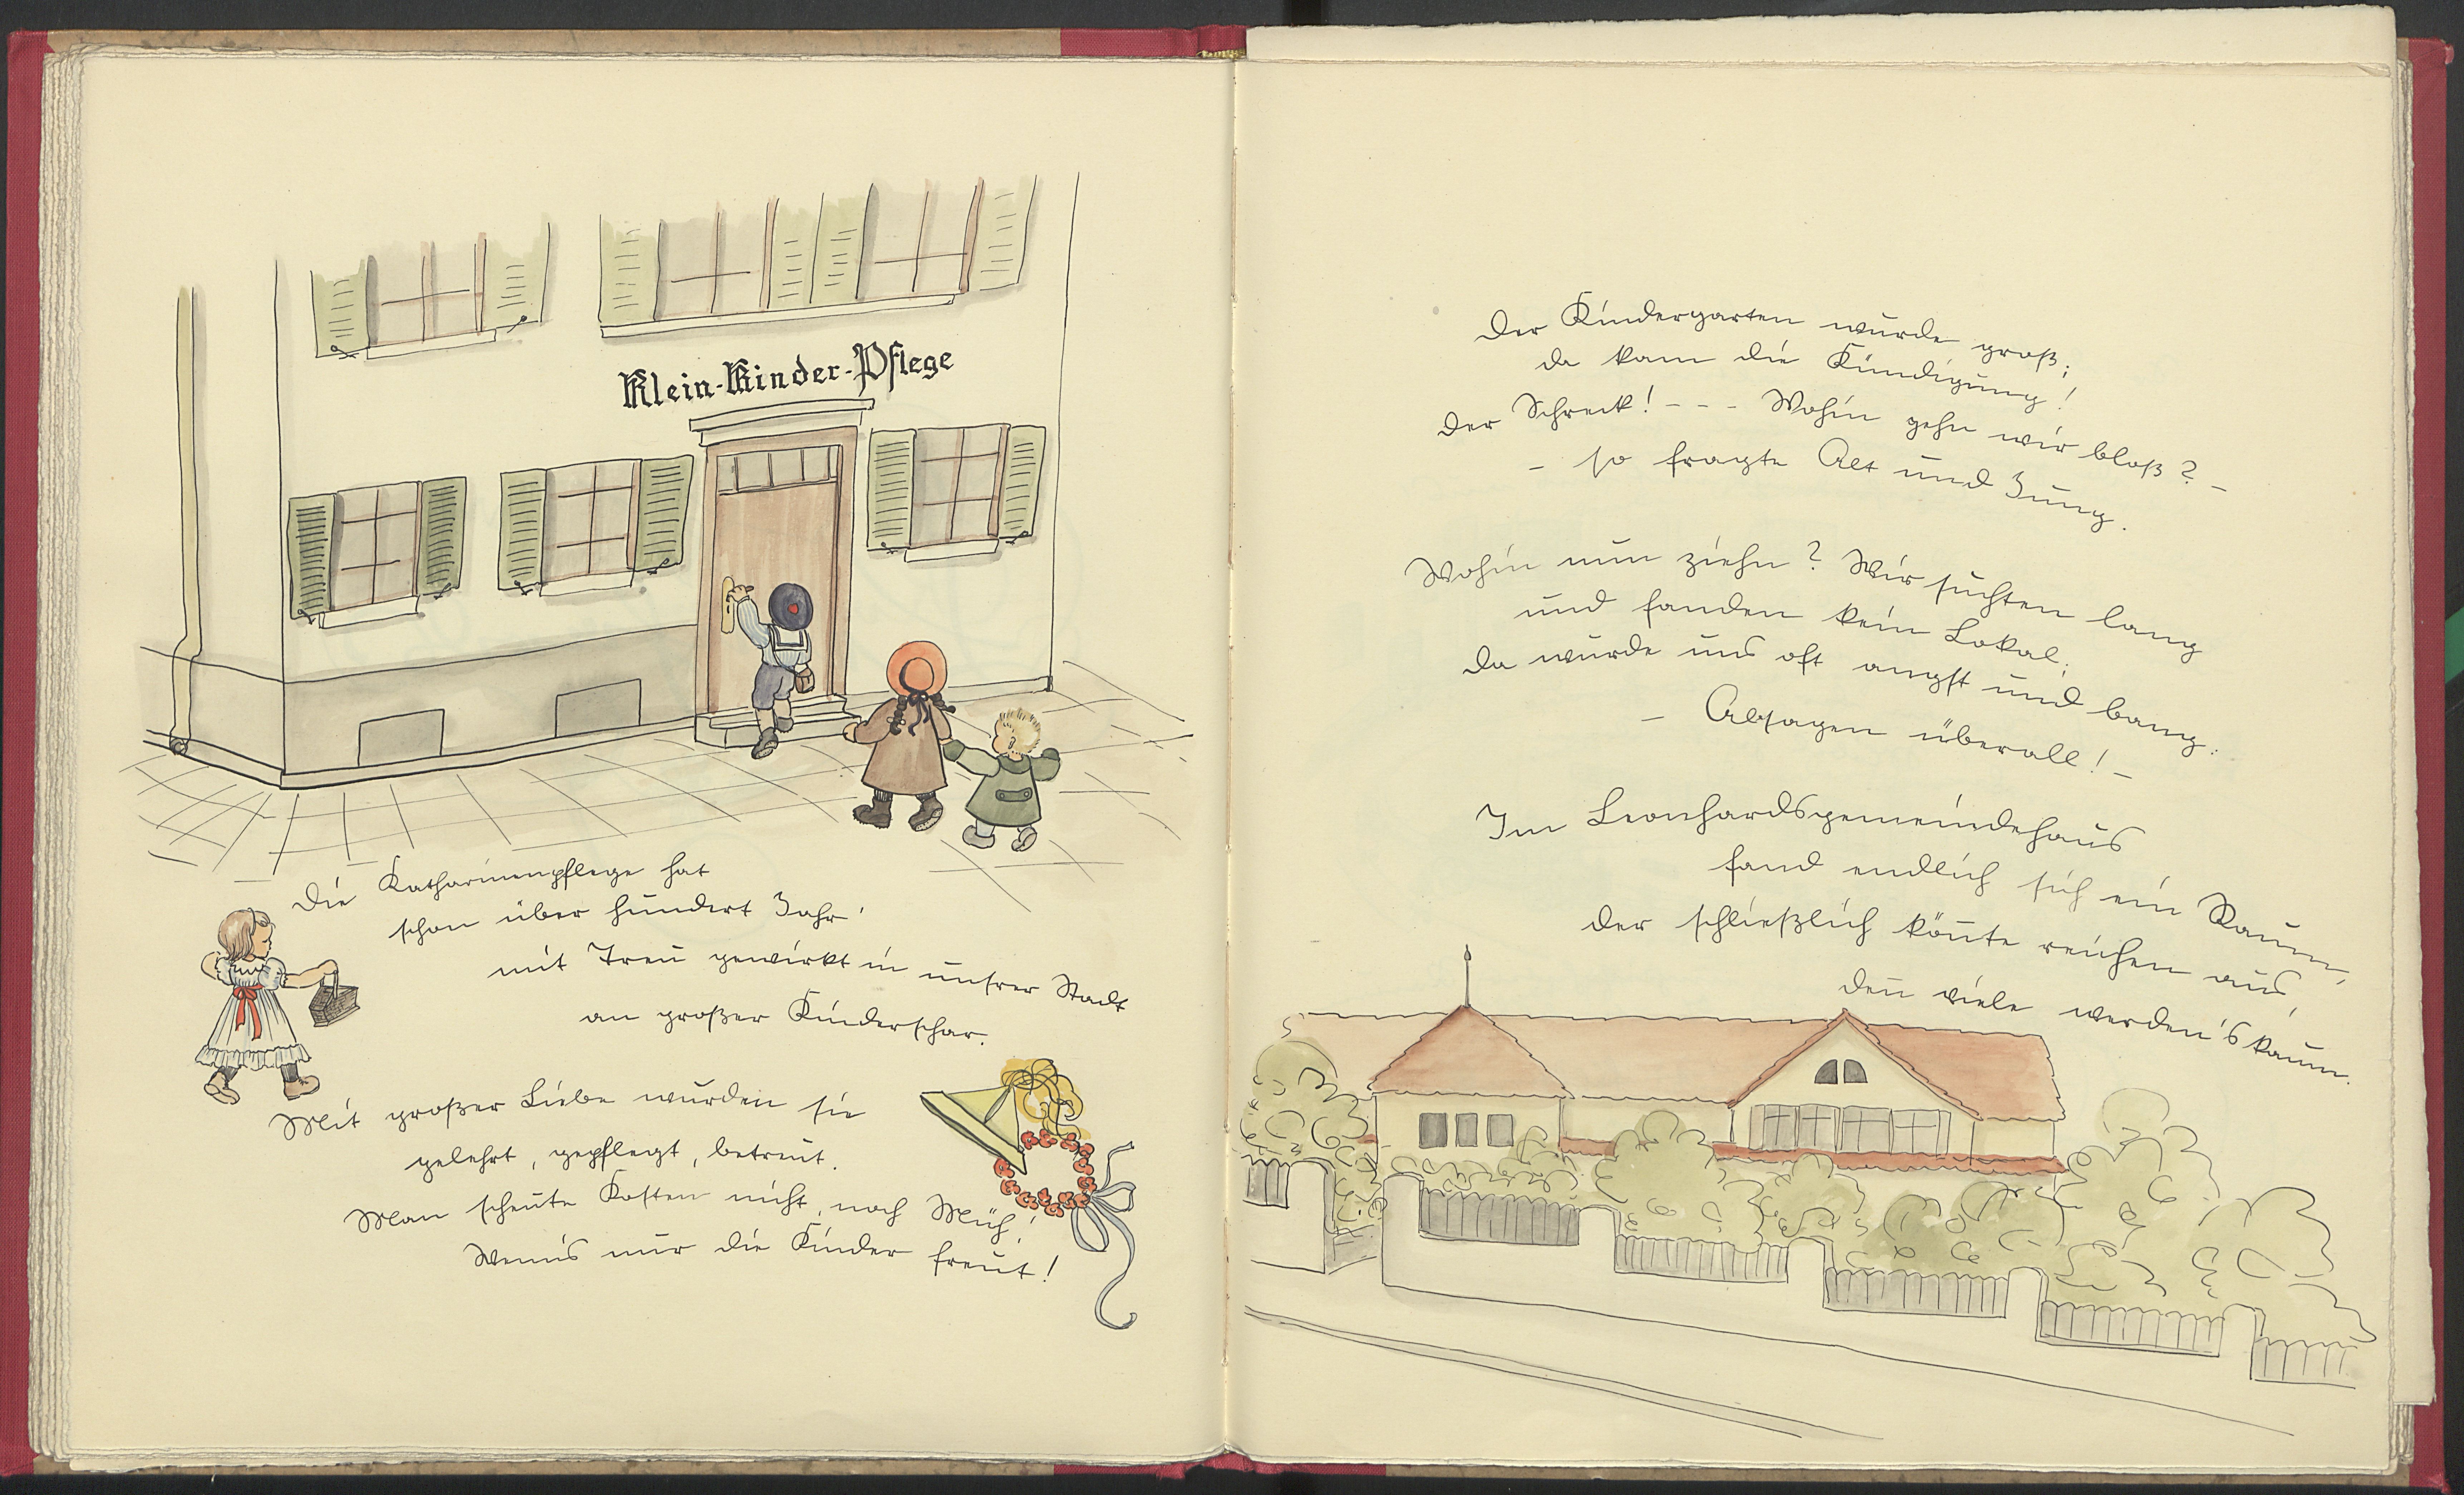 Klein-Kinder-Pflege
Die Katharinenpflege hat
schon über hundert Jahr'
mit Treu gewirkt in unsrer Stadt
an großer Kinderschar.
Mit großer Liebe wurden sie
gelehrt, gepflegt, betreut.
Man scheute Kosten nicht, noch Müh',
Wenn's nur die Kinder freut!
Der Kindergarten wurde groß;
da kam die Kündigung!
Der Schreck! - - - Wohin gehn wir bloß? -
- so fragte Alt und Jung.
Wohin nun ziehn? Wir suchten lang
und fanden kein Lokal;
Da wurde uns oft angst und bang:
- Absagen überall! -
Im Leonhardsgemeindehaus
fand endlich sich ein Raum,
der schließlich kön̅te reichen aus,
den̅ viele werden's kaum.